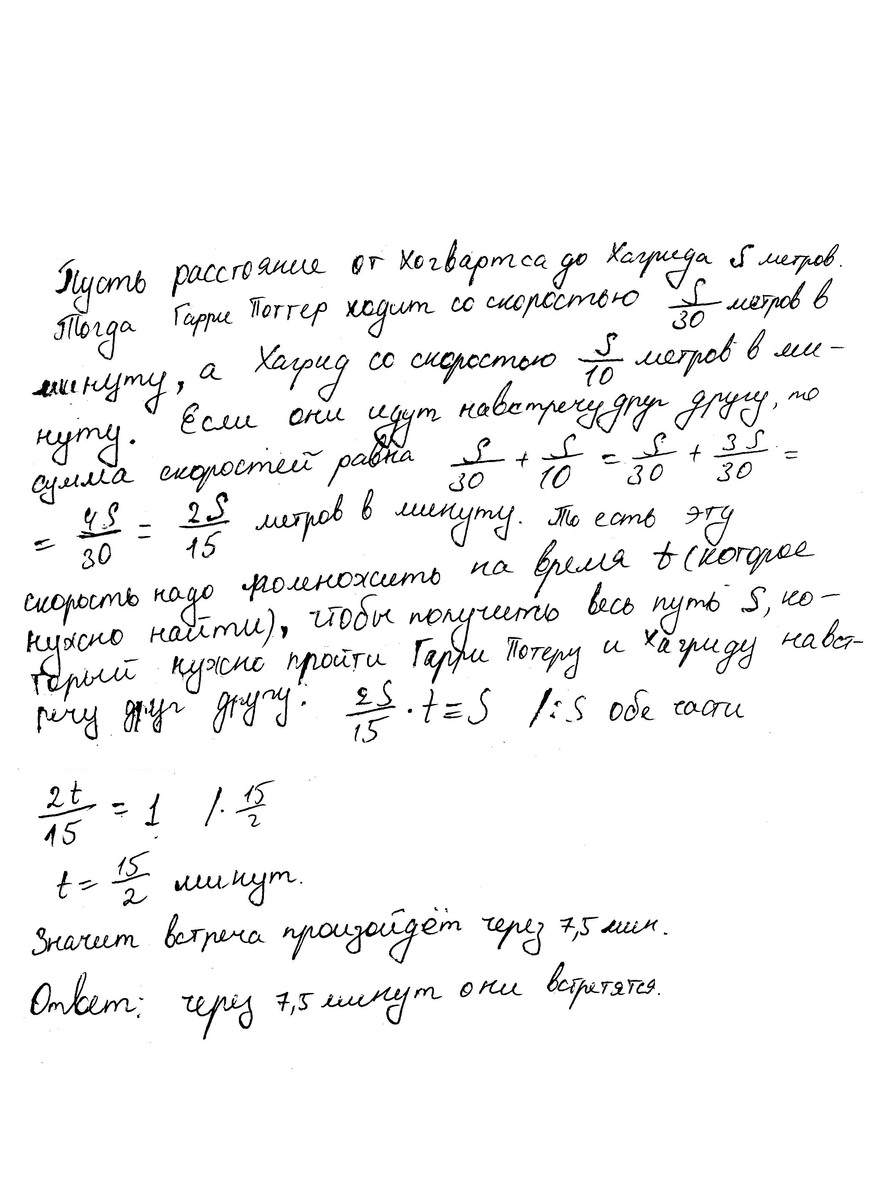 Пусть расстояние от Хогвартса до Хагрида S метров.
Тогда Гарри Поттер ходит со скоростью S/30 метров в
минуту, а Хагрид со скоростью S/10 метров в ми-
нуту. Если они идут навстречу друг другу, то
сумма скоростей равна S/30 + S/10 = S/30 + 3S/30 =
= 4S/30 = 2S/15 метров в минуту. То есть эту
скорость надо помножить на время t (которое
нужно найти), чтобы получить весь путь S, ко-
торый нужно пройти Гарри Потеру и Хагриду навст-
речу друг другу: 2S/15 · t = S /:S обе части
2t/15 = 1 /· 15/2
t = 15/2 минут.
Значит встреча произойдёт через 7,5 мин.
Ответ: через 7,5 минут они встретятся.